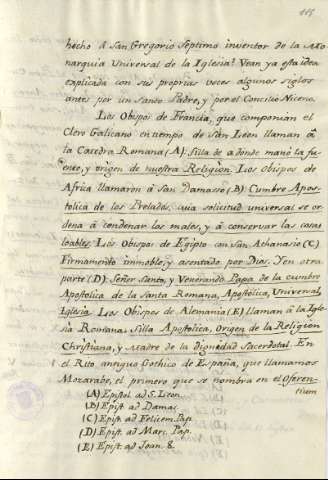 hecho â San Gregorio Septimo inventor de la Mo
narquia Universal de la Iglesia? Vean ya esta idea
explicada con sus proprias voces algunos siglos
antes por un Santo Padre, y por el Concilio Niceno.
Los Obispos de Francia, que componian el
Clero Galicano en tiempo de San Leon llaman â
la Catedra Romana (A): Silla de a donde manò la fu-
ente, y origen de nuestra Religion. Los Obispos de
Africa llamaron â San Damaso (B) Cumbre Apos-
tolica de los Prelados, cuia solicitud universal se or-
dena â condenar los males, y â conservar las cosas
loables. Los Obispos de Egipto con San Athanasio (C)
Firmamento immoble, y asentado por Dios. Y en otra
parte (D): Señor Santo, y Venerando Papa de la cumbre
Apostolica de la Santa Romana, Apostolica, Universal
Iglesia. Los Obispos de Alemania (E) llaman â la Igle
sia Romana: Silla Apostolica, Origen de la Religion
Christiana, y Madre de la Dignidad Sacerdotal. En
el Rito antiguo Gothico de España, que llamamos
Mozarabe, el primero que se nombra en el Oferen-
tium
(A) Epistol. ad S. Leon.
(B) Epist. ad Damas.
(C) Epist. ad Felicem Pap.
(D) Epist. ad Marc. Pap.
(E) Epist. ad Joan. 8.